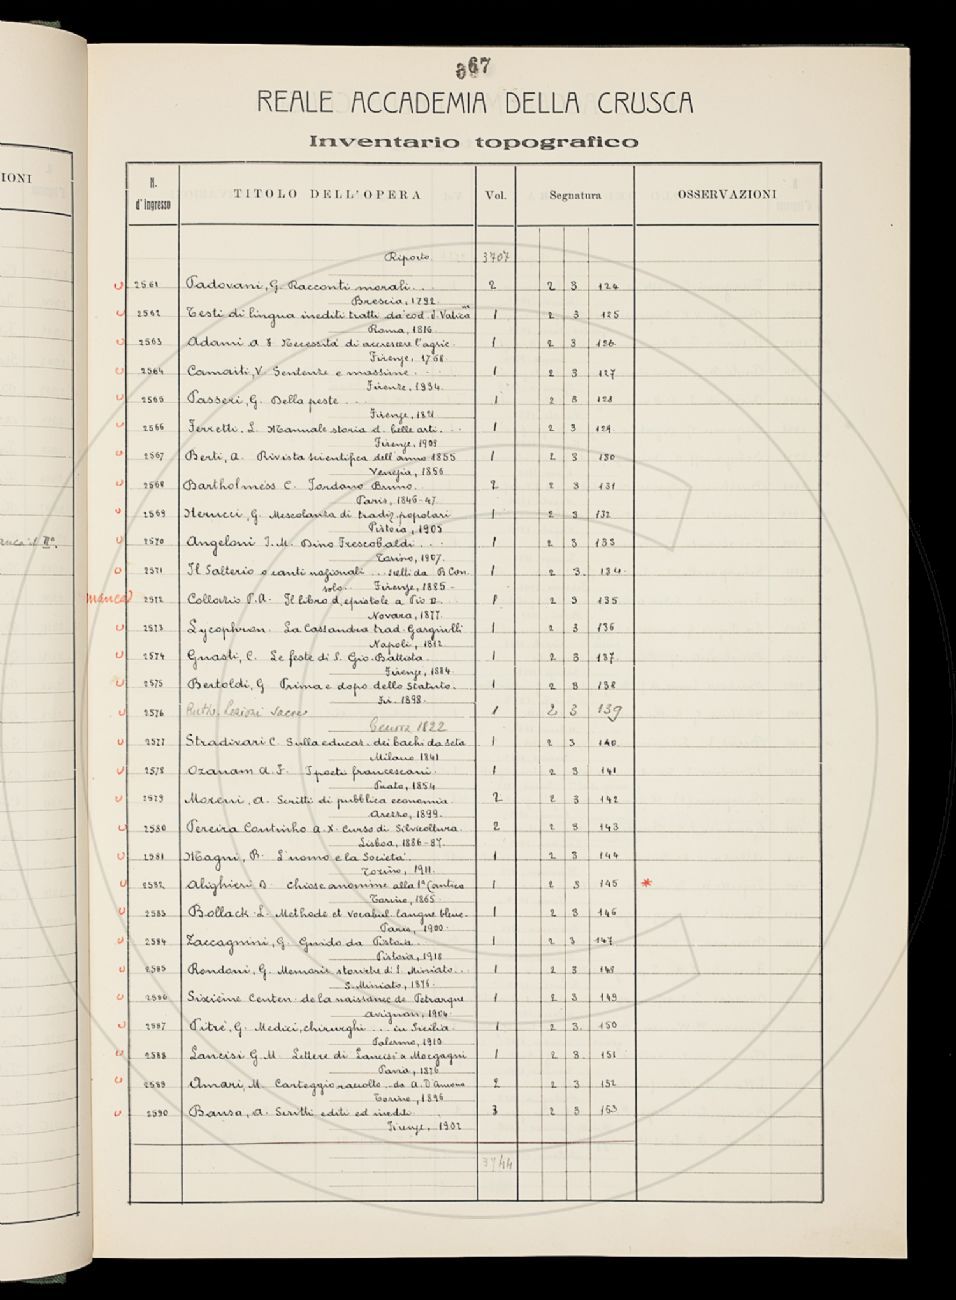 367
REALE ACCADEMIA DELLA CRUSCA
Inventario topografico
IONI
N. d'Ingresso TITOLO DELL'OPERA Vol. Segnatura OSSERVAZIONI
Riporto 3707
2561 Padovani, G. Racconti morali . . . 2 2 3 124
Brescia, 1792.
2562 Testi di lingua inediti tratti da' cod. d. Vatica 1 2 3 125
Roma, 1816.
2563 Adami A. F. Necessità di accrescere l'agric. 1 2 3 126
Firenze, 1768.
2564 Camaiti, V. Sentenze e massime . . . 1 2 3 127
Firenze, 1934.
2565 Passeri, G. Della peste . . . 1 2 3 128
Firenze, 1821
2566 Ferretti. L. Manuale storia d. belle arti. . . 1 2 3 129
Firenze, 1909
2567 Berti, A. Rivista scientifica dell'anno 1855 1 2 3 130
Venezia, 1856
2568 Bartholmèss C. Jordano Bruno. 2 2 3 131
Paris, 1846-47.
2569 Nerucci, G. Mescolanza di tradiz. popolari 1 2 3 132
Pistoia, 1903
2570 Angeloni I. M. Dino Frescobaldi . . . 1 2 3 133
Torino, 1907.
2571 Il Salterio o canti nazionali ... scelti da B. Con. 1 2 3 134
solo. Firenze, 1885 -
manca 2572 Collazio P. A. Il libro d. epistole a Pio II. 1 2 3 135
Novara, 1877.
2573 Lycophron. La Cassandra trad. Gargiulli 1 2 3 136
Napoli, 1812
2574 Guasti, C. Le feste di S. Gio. Battista. 1 2 3 137
Firenze, 1884.
2575 Bertoldi, G Prima e dopo dello Statuto. 1 2 3 138
Fir. 1898.
2576 Lezioni sacre 1 2 3 139
Genova 1822
2577 Stradivari C. Sulla educaz. dei bachi da seta 1 2 3 140
Milano 1841
2578 Ozanam A. F. I poeti francescani. 1 2 3 141
Prato, 1854
2579 Moreni, A. Scritti di pubblica economia. 2 2 3 142
Arezzo, 1899.
2580 Pereira Coutinho A. X. Curso di Silvicoltura. 2 2 3 143
Lisboa, 1886-87.
2581 Magni, B. L'uomo e la Società. 1 2 3 144
Torino, 1911.
2582 Alighieri D. Chiose anonime alla 1ª Cantica 1 2 3 145 *
Torino, 1865.
2583 Bollack. L. Methode et vocabul. langue bleue. 1 2 3 146
Paris, 1900.
2584 Zaccagnini, G. Guido da Pistoia. 1 2 3 147
Pistoia, 1918
2585 Rondoni, G. Memorie storiche di S. Miniato . . . 1 2 3 148
S. Miniato, 1876.
2586 Sixième Centen. de la naissance de Petrarque 1 2 3 149
Avignon, 1904.
2587 Pitrè, G. Medici, chirurghi . . . in Sicilia. 1 2 3 150
Palermo, 1910
2588 Lancisi G. M. Lettere di Lancisi a Morgagni 1 2 3 151
Pavia, 1876
2589 Amari, M. Carteggio raccolto . da A. D'Ancona 2 2 3 152
Torino, 1896
2590 Bausa, A. Scritti editi ed inediti. 3 2 3 153
Firenze, 1902
3744